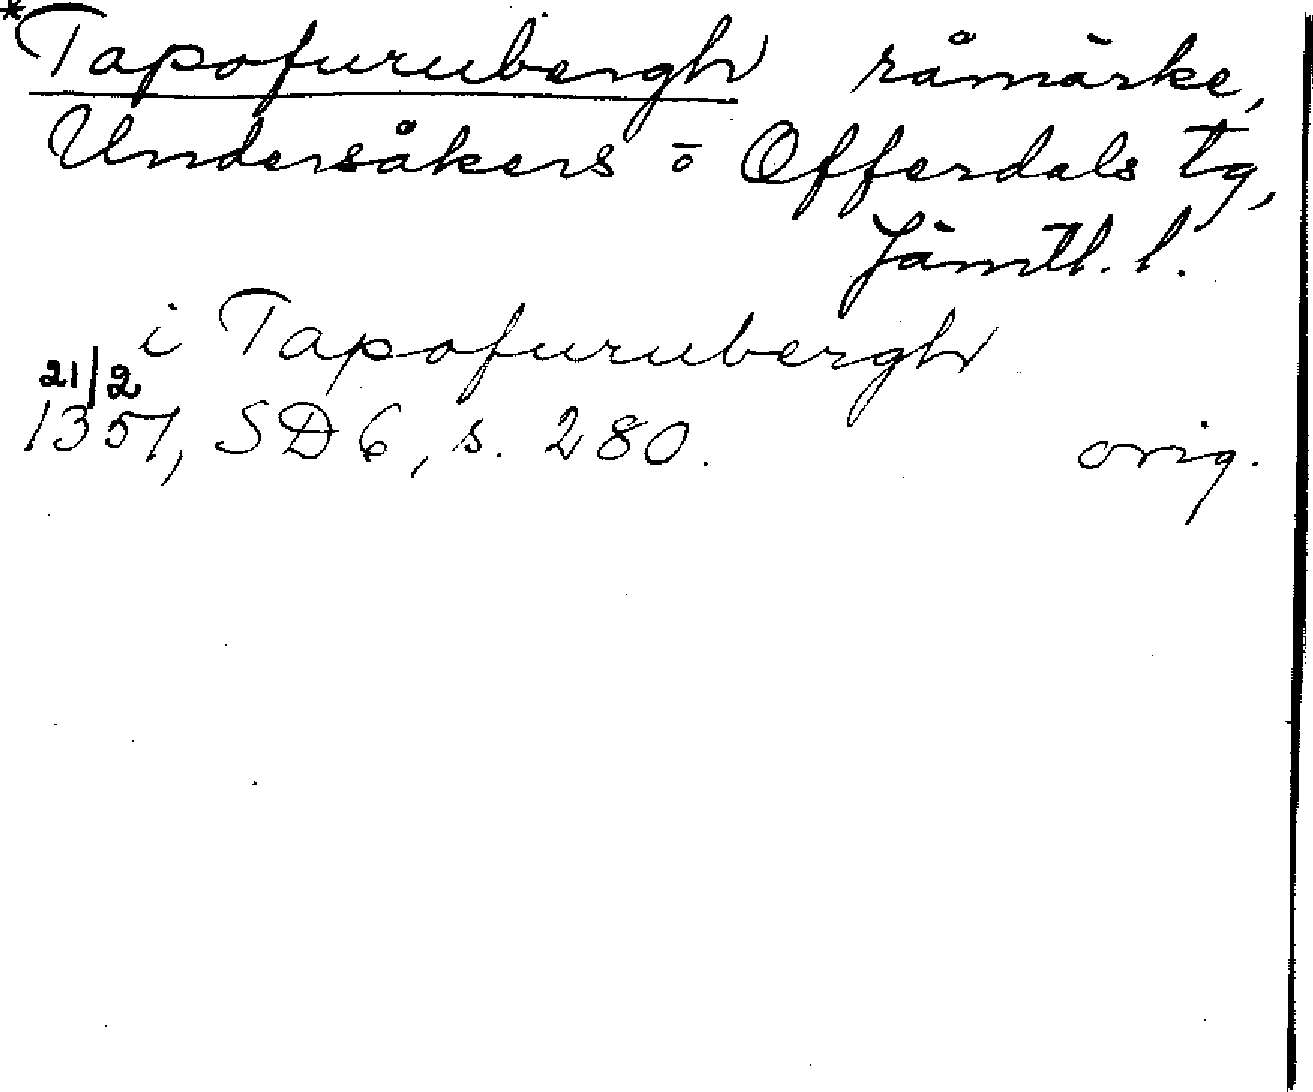 *Tapofurubergh råmärke,
Undersåkers o Offerdals tg,
Jämtl. l.
i Tapofurubergh
21/2
1357, SD 6, s. 280. orig.